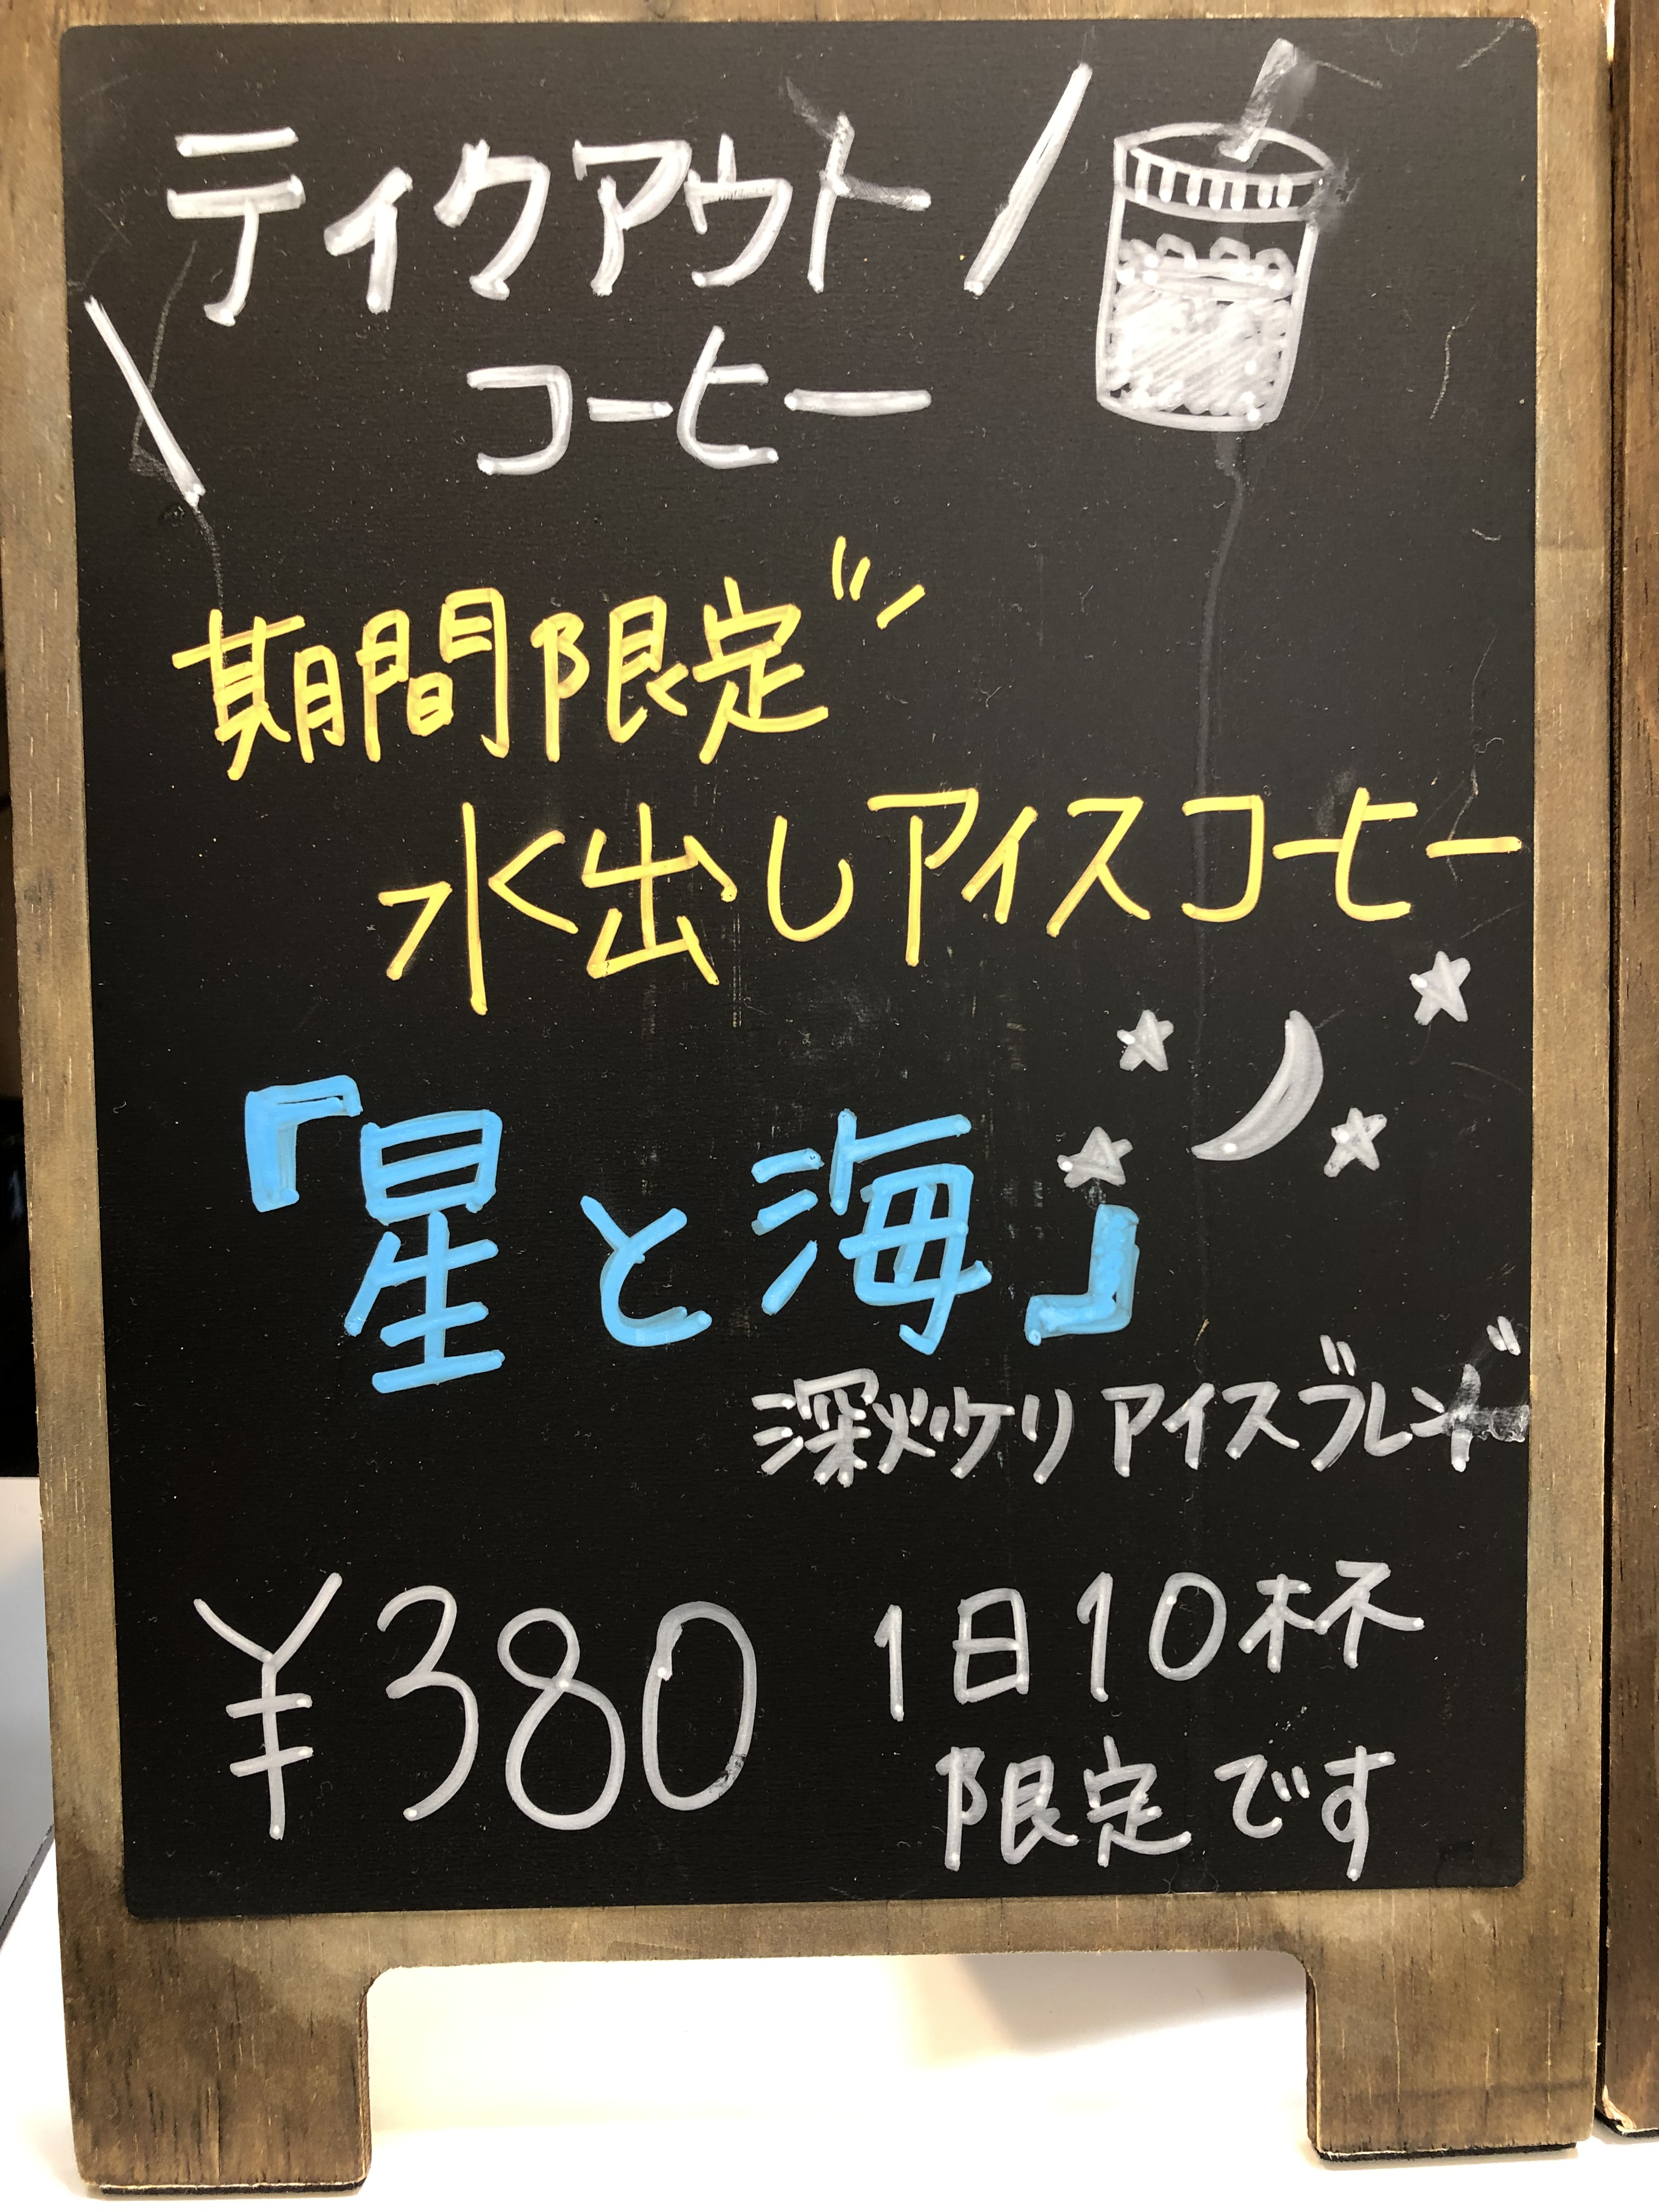 テイクアウト
コーヒー
期間限定
水出しアイスコーヒー
『星と海』
深炒りアイスブレンド
¥380
1日10杯
限定です